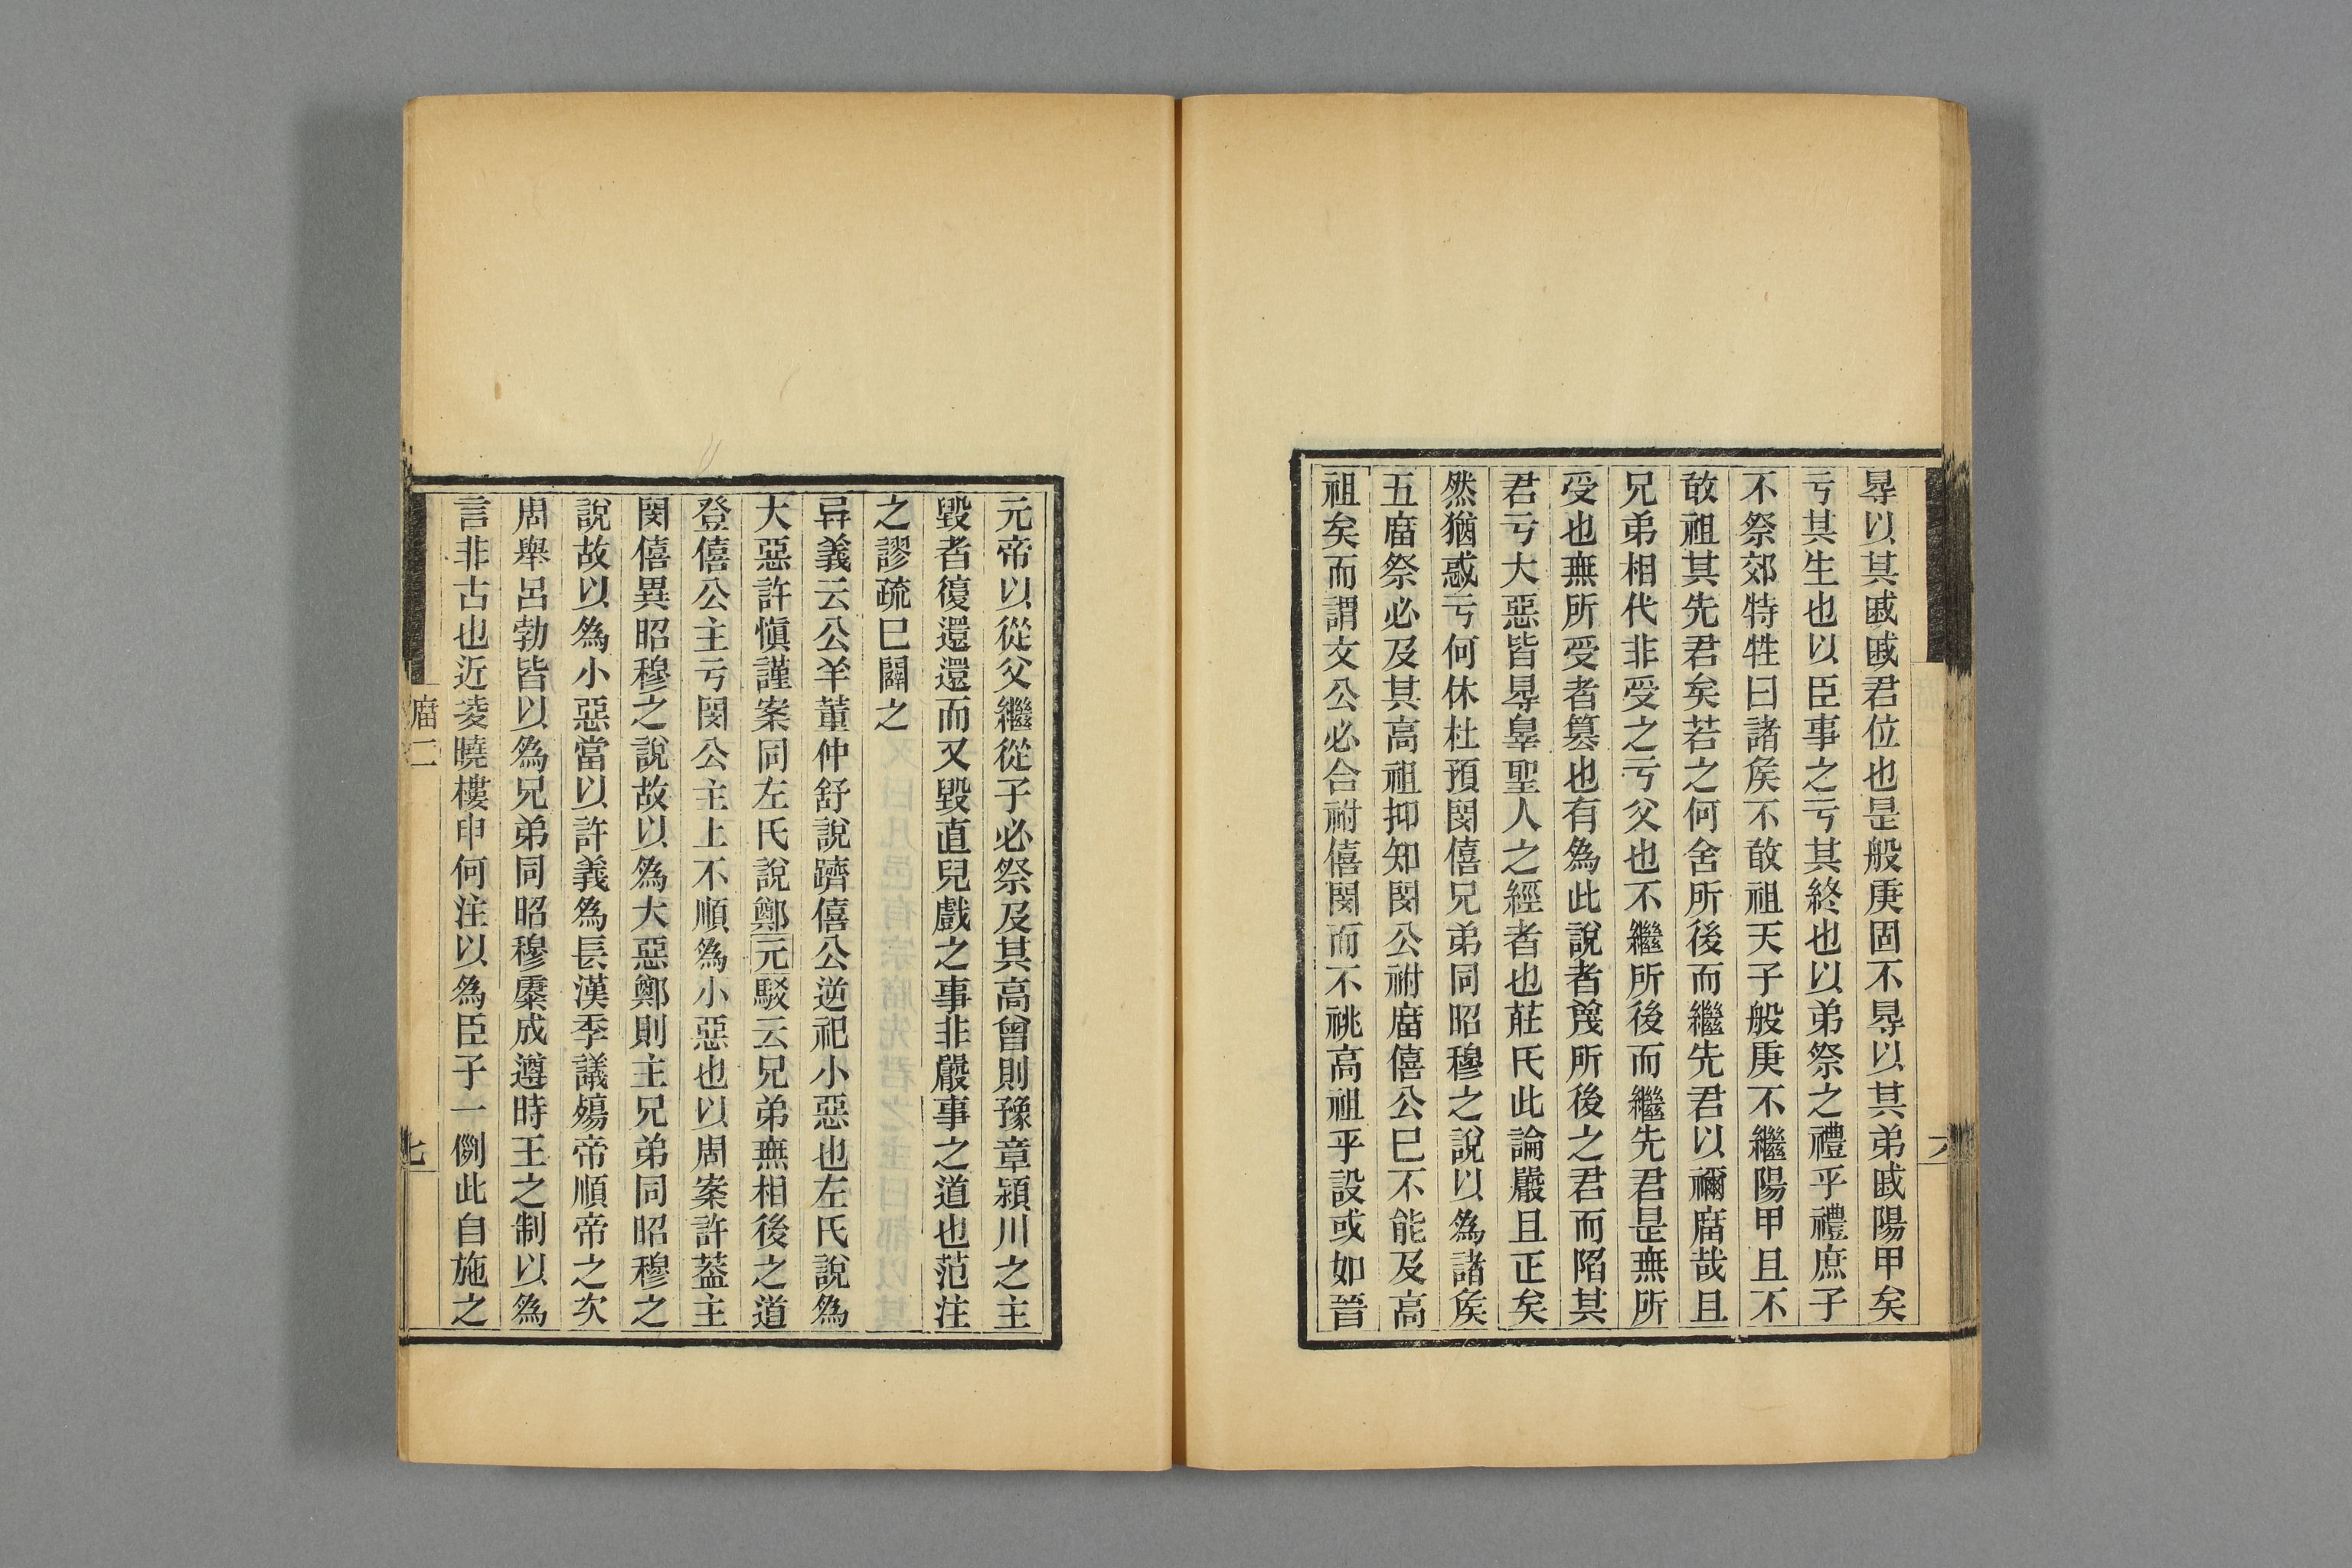 㝵以其戚戚君位也是般庚固不㝵以其弟戚陽甲矣
亏其生也以臣事之亏其終也以弟祭之禮乎禮庶子
不祭郊特牲曰諸矦不敢祖天子般庚不繼陽甲且不
敢祖其先君矣若之何舍所後而繼先君以禰庿哉且
兄弟相代非受之亏父也不繼所後而繼先君是無所
受也無所受者篡也有為此說者蔑所後之君而陷其
君亏大惡皆㝵辠聖人之經者也莊氏此論嚴且正矣
然猶惑亏何休杜預閔僖兄弟同昭穆之說以為諸矦
五庿祭必及其高祖抑知閔公祔庿僖公巳不能及高
祖矣而謂文公必合祔僖閔而不祧高祖乎設或如晉
元帝以從父繼從子必祭及其高曾則豫章潁川之主
毀者復還還而又毀直兒戲之事非嚴事之道也范注
之謬疏巳闢之
异義云公羊董仲舒說躋僖公逆祀小惡也左氏說為
大惡許愼謹案同左氏說鄭元駁云兄弟無相後之道
登僖公主亏閔公主上不順為小惡也以周案許葢主
閔僖異昭穆之說故以為大惡鄭則主兄弟同昭穆之
說故以為小惡當以許義為長漢季議殤帝順帝之次
周舉呂勃皆以為兄弟同昭穆麋成遵時王之制以為
言非古也近淩曉樓申何注以為臣子一例此自施之
庿二
七
六